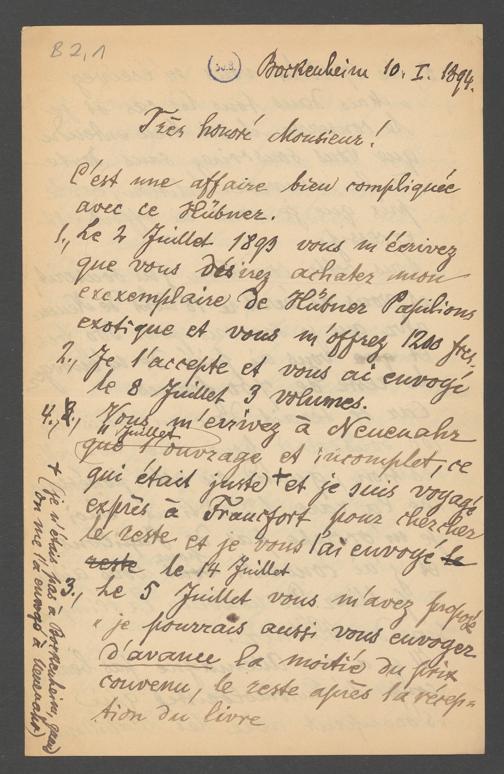 B 2,1
Bockenheim 10. I. 1894.
Très honoré Monsieur!
C'est une affaire bien compliquée
avec ce Hübner.
1., Le 2 Juillet 1893 vous m'écrivez
que vous désirez achater mon
exexemplaire de Hübner Papilions
exotique et vous m'offrez 1200 frcs.
2., Je l'accepte et vous ai envoyé
le 8 Juillet 3 volumes.
4., Vous m'ecrivez à Neuenahr
11 Juillet
que l'ouvrage et incomplet, ce
qui était juste + et je suis voyagé
exprès à Francfort pour chercher
le reste et je vous l'ai envoyé le
reste le 14 Juillet
3., Le 5 Juillet vous m'avez proposé
" je pourrais aussi vous envoyer
d'avance la moitié du prix
convenu, le reste après la récep=
tion du livre
+ (je n'étais pas à Bockenheim,
on me l'a envoyé à Neuenahr)